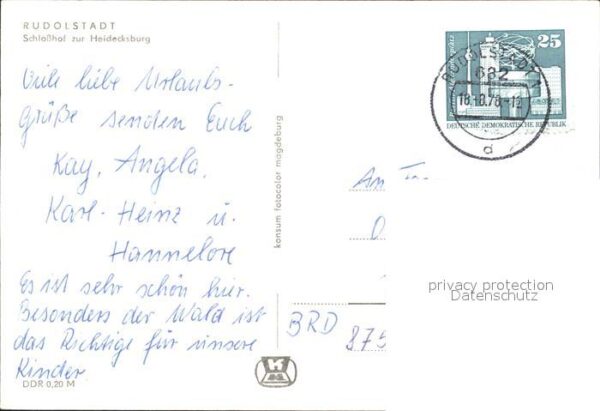 RUDOLSTADT
Schloßhof zur Heidecksburg
Viele liebe Urlaubs-
grüße senden Euch
Kay, Angela,
Karl-Heinz u.
Hannelore
Es ist sehr schön hier.
Besonders der Wald ist
das Richtige für unsere
Kinder
DDR 0,20 M
konsum fotocolor magdeburg
25
DEUTSCHE DEMOKRATISCHE REPUBLIK
RUDOLSTADT 1
682
d
An
BRD
875
privacy protection
Datenschutz